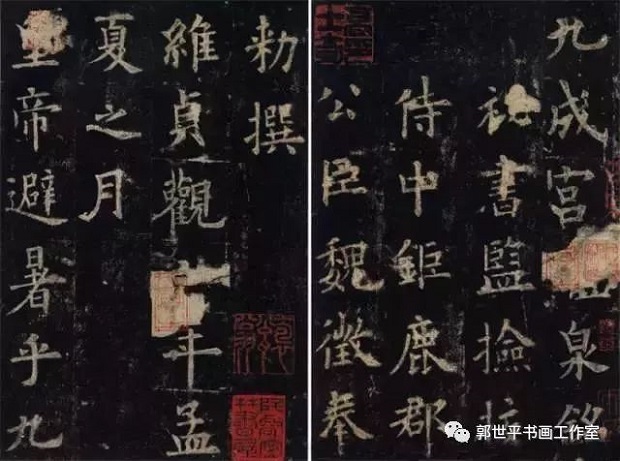 九成宫泉銘
書監撿挍
侍中鉅鹿郡
公臣魏徵奉
勑撰
維貞觀年孟
夏之月
皇帝避暑乎九
郭世平书画工作室